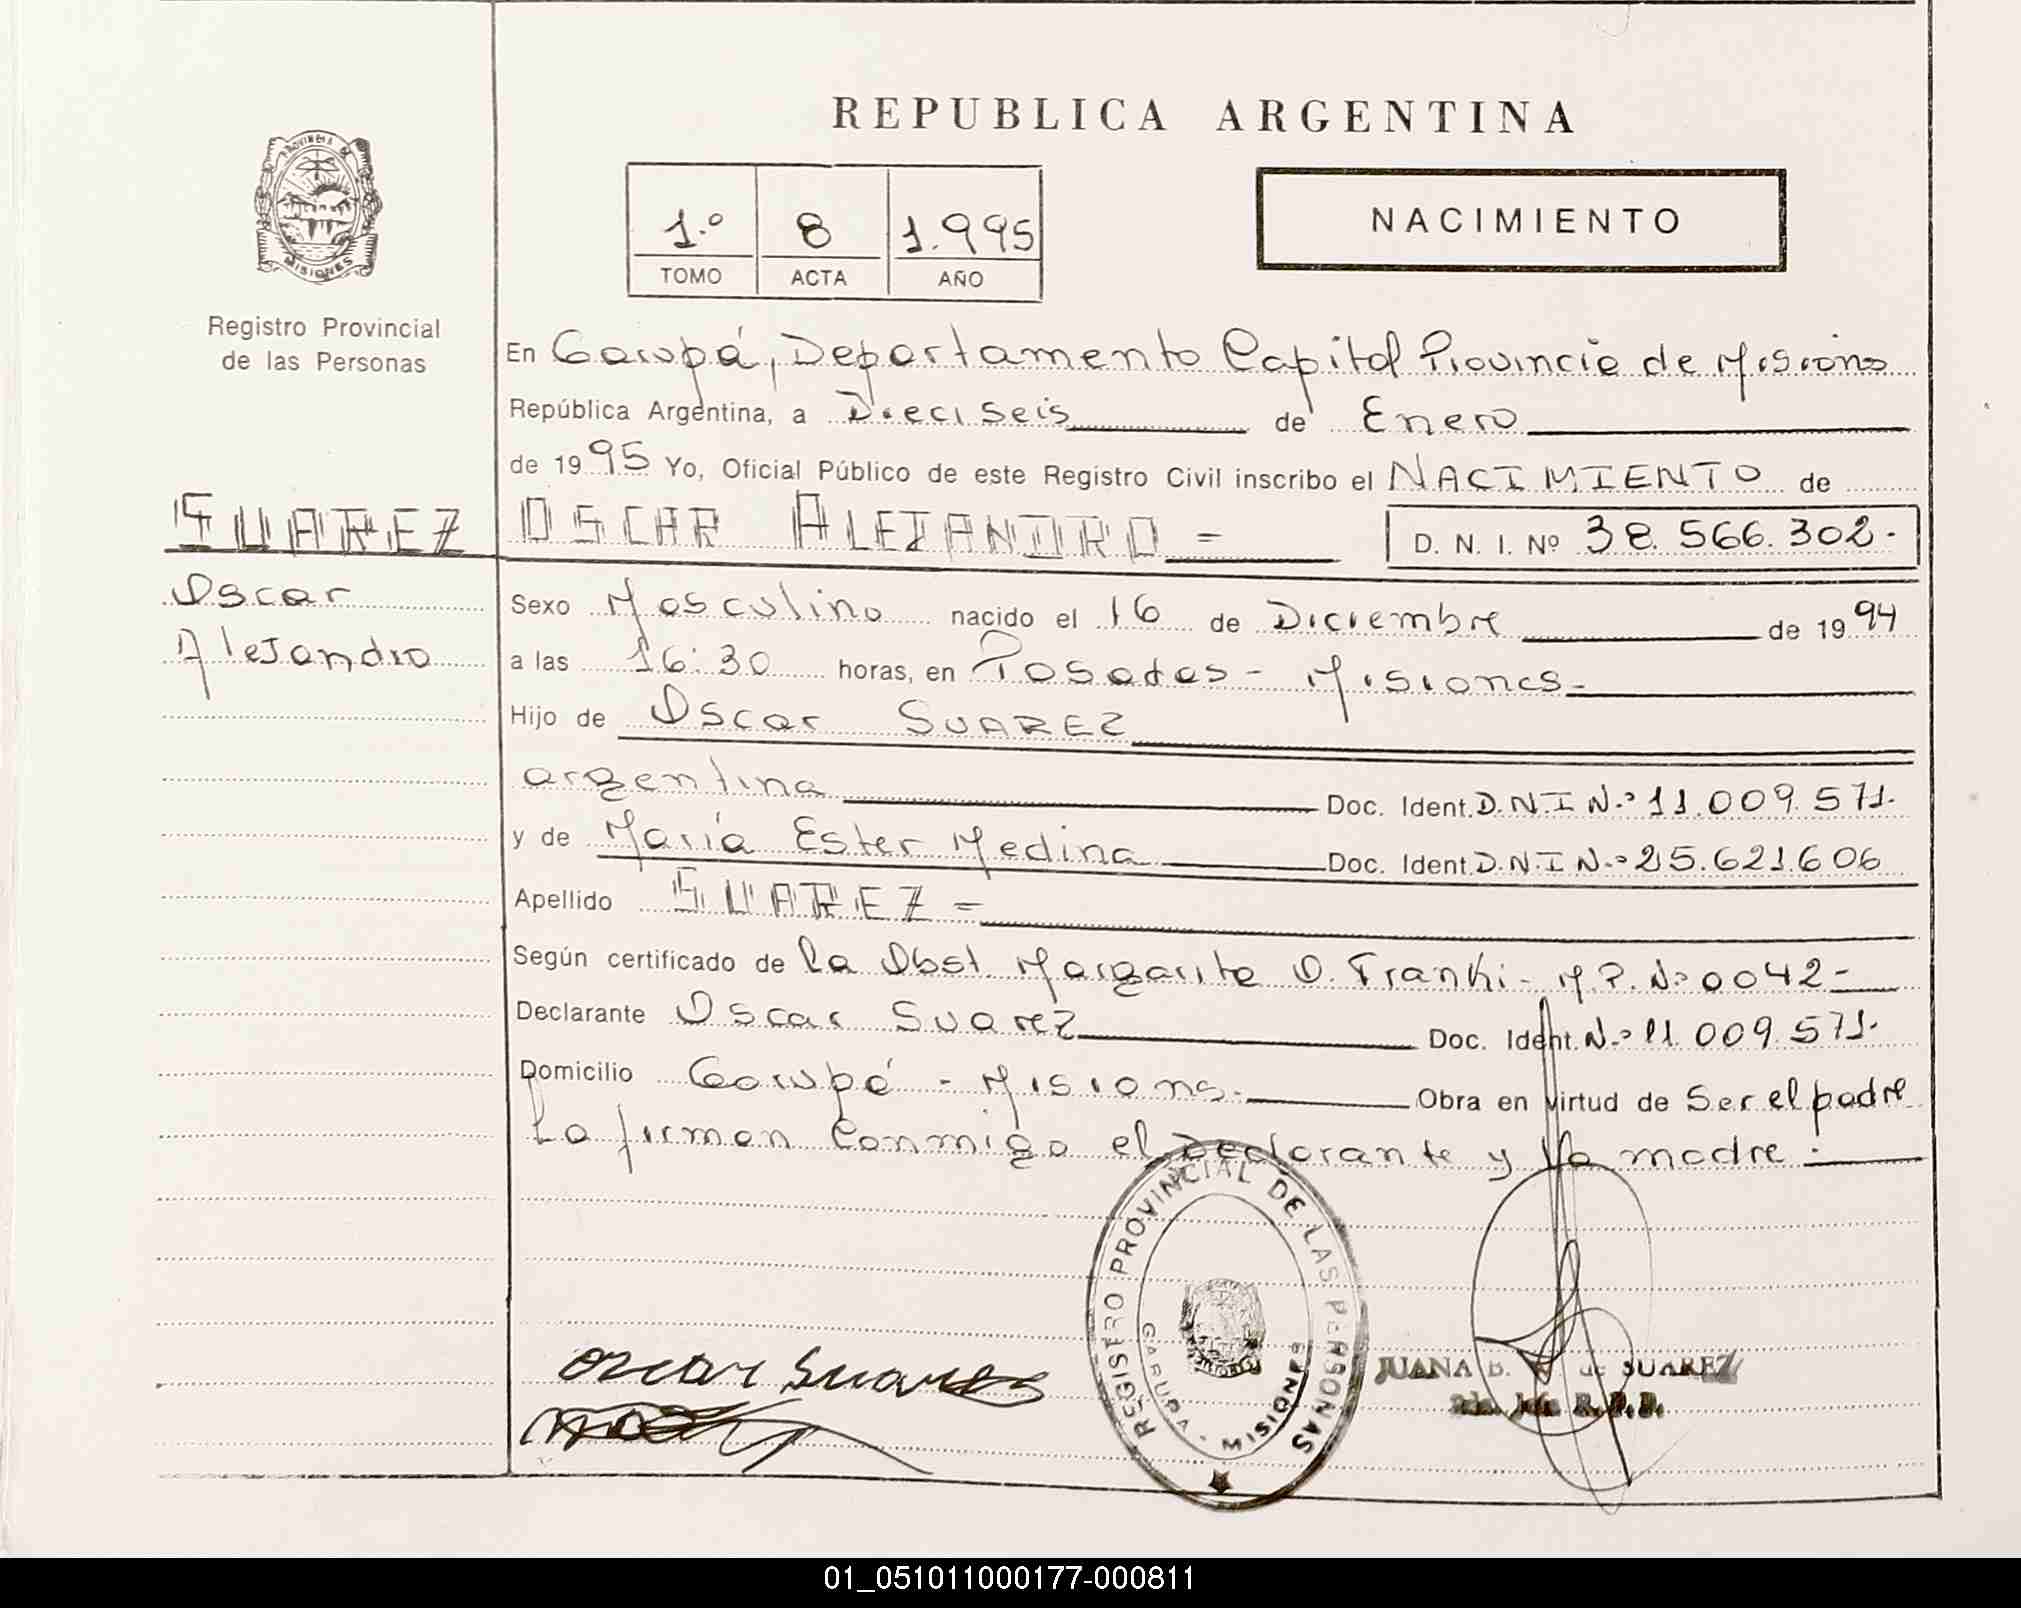 PROVINCIA DE
MISIONES
Registro Provincial
de las Personas
SUAREZ
Oscar
Alejandro
REPUBLICA ARGENTINA
1.º 8 1.995
TOMO ACTA AÑO
NACIMIENTO
En Garupá, Departamento Capital Provincia de Misiones
República Argentina, a Dieciseis de Enero
de 1995 Yo, Oficial Público de este Registro Civil inscribo el NACIMIENTO de
OSCAR ALEJANDRO =
D. N. I. Nº 38.566.302.
Sexo Masculino nacido el 16 de Diciembre de 1994
a las 16:30 horas, en Posadas - Misiones-
Hijo de Oscar SUAREZ
argentina Doc. Ident. D.N.I N.º 11.009.571.
y de María Ester Medina Doc. Ident. D.N.I N.º 25.621.606
Apellido SUAREZ =
Según certificado de la Obst. Margarita O. Franki - M.P. Nº 0042-
Declarante Oscar Suarez Doc. Ident. N.º 11.009.571.
Domicilio Garupá - Misions. Obra en virtud de Ser el padre
La firman Conmigo el Declarante y la madre.
REGISTRO PROVINCIAL DE LAS PERSONAS
GARUPA - MISIONES
ozcar suares
JUANA B. de SUAREZ